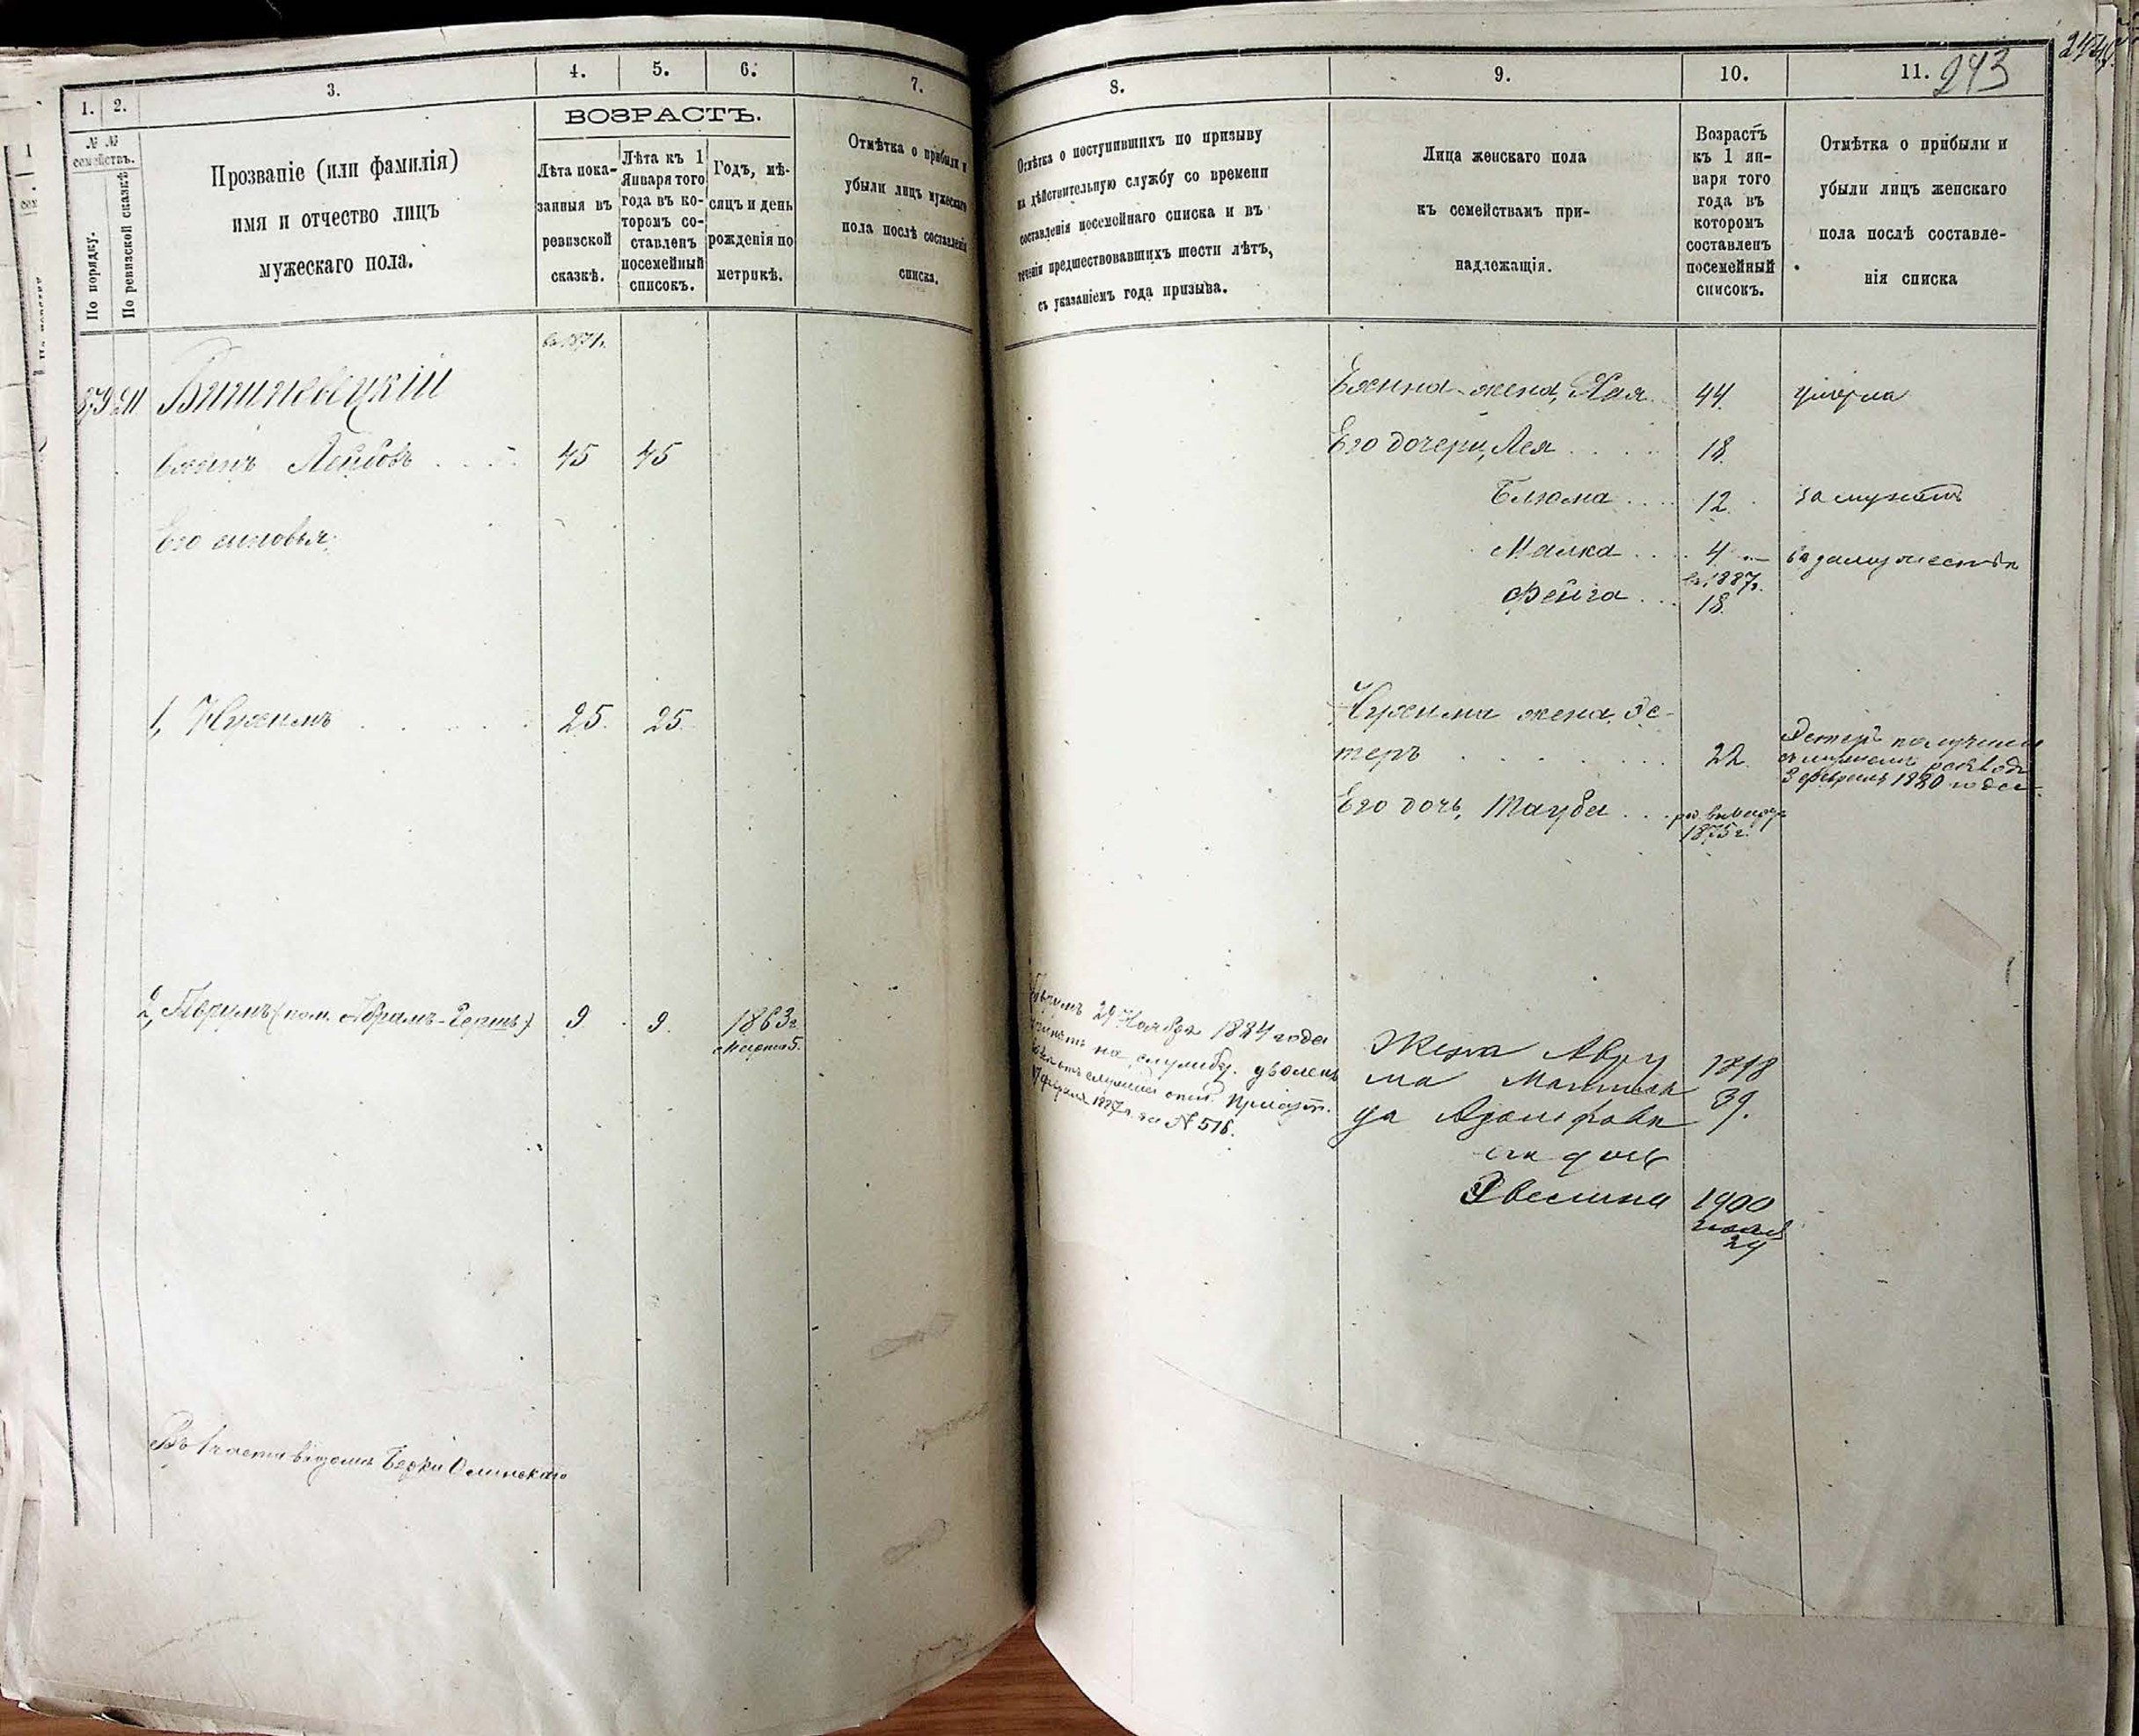 1.
2.
3.
4.
5.
6.
7.
ВОЗРАСТЪ.
№ №
семействъ.
По порядку.
По ревизской сказкѣ
Прозваніе (или фамилія)
имя и отчество лицъ
мужескаго пола.
Лѣта пока-
занныя въ
ревизской
сказкѣ.
Лѣта къ 1
Января того
года въ ко-
торомъ со-
ставленъ
посемейный
списокъ.
Годъ, мѣ-
сяцъ и день
рожденія по
метрикѣ.
Отмѣтка о прибыли и
убыли лицъ мужескаго
пола послѣ составленія
списка.
въ 1871г.
Вишневецкій
Лейбовъ 45 45
Его сыновья:
1, Нухимъ 25. 25.
2, Аврумъ (пом. Абрамъ-Гершъ) 9 9. 1863г.
Марта 5.
8.
9.
10.
11. 243
Отмѣтка о поступившихъ по призыву
на дѣйствительную службу со времени
составленія посемейнаго списка и въ
теченіи предшествовавшихъ шести лѣтъ,
съ указаніемъ года призыва.
Лица женскаго пола
къ семействамъ при-
надлежащія.
Возрастъ
къ 1 ян-
варя того
года въ
которомъ
составленъ
посемейный
списокъ.
Отмѣтка о прибыли и
убыли лицъ женскаго
пола послѣ составле-
нія списка
жена, Хая 44. умерла
Его дочери, Лея 18.
Блюма 12. замужемъ
Малка 4
въ 1887г.
Фейга 18.
Нухима жена Эс-
теръ 22.
Эстеръ получила
съ мужемъ разводъ
3 февраля 1880 года.
Его дочь, Тауба
1875 г.
Аврумъ 29 Ноября 1884 года
принятъ на службу. уволенъ
февраля 1887г. за № 516.
Жена Авру 1898
ма Матиль 39.
да
ихъ дочь
Эвелина 1900
29